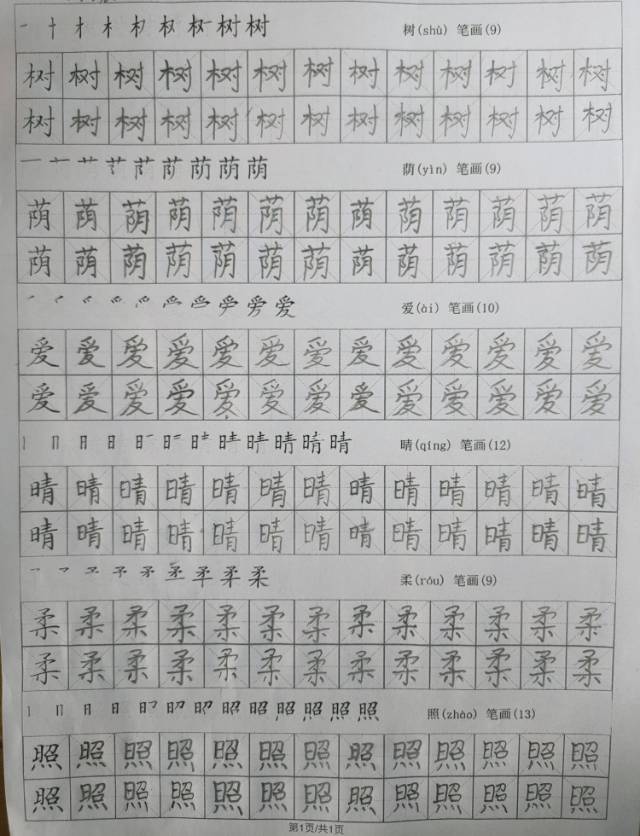 一 十 木 权 树 树 树(shù) 笔画(9)
树 树 树 树 树 树 树 树 树 树 树 树 树
树 树 树 树 树 树 树 树 树 树 树 树 树
一 艹 荫 荫 荫(yìn) 笔画(9)
荫 荫 荫 荫 荫 荫 荫 荫 荫 荫 荫 荫 荫
荫 荫 荫 荫 荫 荫 荫 荫 荫 荫 荫 荫 荫
爱 爱(ài) 笔画(10)
爱 爱 爱 爱 爱 爱 爱 爱 爱 爱 爱 爱 爱
爱 爱 爱 爱 爱 爱 爱 爱 爱 爱 爱 爱 爱
丨 冂 日 日 晴 晴 晴 晴(qíng) 笔画(12)
晴 晴 晴 晴 晴 晴 晴 晴 晴 晴 晴 晴 晴
晴 晴 晴 晴 晴 晴 晴 晴 晴 晴 晴 晴 晴
予 矛 柔 柔 柔(róu) 笔画(9)
柔 柔 柔 柔 柔 柔 柔 柔 柔 柔 柔 柔 柔
柔 柔 柔 柔 柔 柔 柔 柔 柔 柔 柔 柔 柔
丨 冂 日 日 昭 昭 照 照 照 照(zhào) 笔画(13)
照 照 照 照 照 照 照 照 照 照 照 照 照
照 照 照 照 照 照 照 照 照 照 照 照 照
第1页/共1页